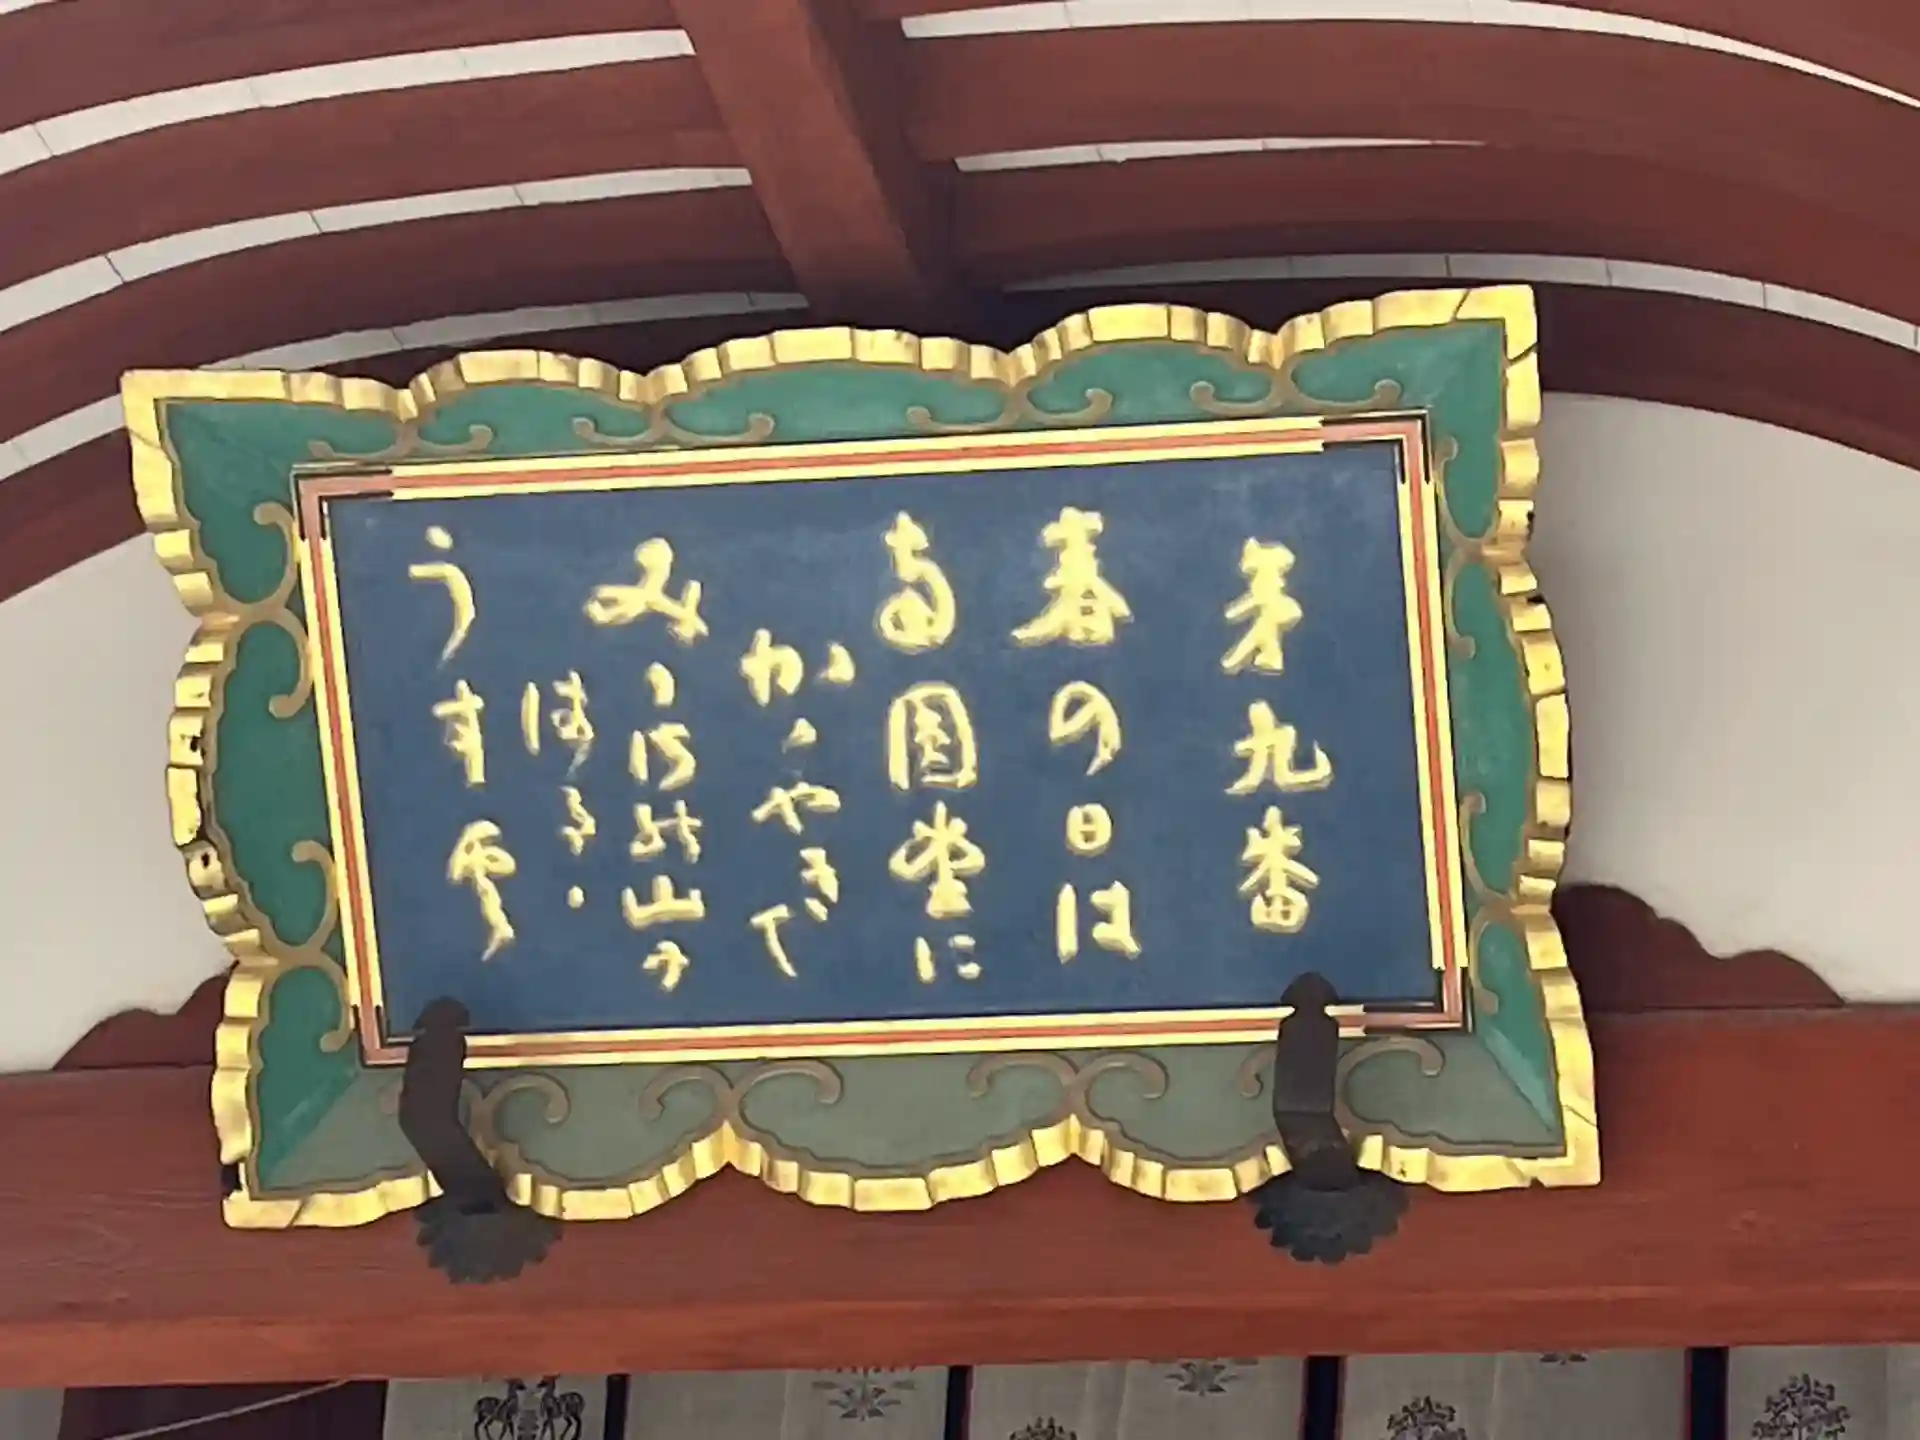 第九番
春の日は
南圓堂に
かゝやきて
みかさの山に
はるゝ
うす雲